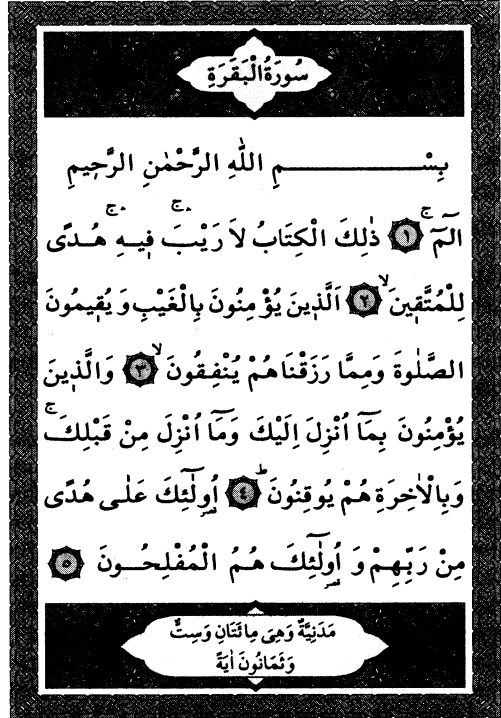 سُورَةُ الْبَقَرَةِ
بِسْمِ اللّٰهِ الرَّحْمٰنِ الرَّح۪يمِ
الٓمٓ ۚ ﴿١﴾ ذٰلِكَ الْكِتَابُ لَا رَيْبَ ۚۛ ف۪يهِ ۚۛ هُدًى
لِلْمُتَّق۪ينَ ۙ ﴿٢﴾ اَلَّذ۪ينَ يُؤْمِنُونَ بِالْغَيْبِ وَ يُق۪يمُونَ
الصَّلٰوةَ وَمِمَّا رَزَقْنَاهُمْ يُنْفِقُونَ ۙ ﴿٣﴾ وَالَّذ۪ينَ
يُؤْمِنُونَ بِمَٓا اُنْزِلَ اِلَيْكَ وَمَٓا اُنْزِلَ مِنْ قَبْلِكَ ۚ
وَبِالْاٰخِرَةِ هُمْ يُوقِنُونَ ۜ ﴿٤﴾ اُو۬لٰٓئِكَ عَلٰى هُدًى
مِنْ رَبِّهِمْ وَ اُو۬لٰٓئِكَ هُمُ الْمُفْلِحُونَ ﴿٥﴾
مَدَنِيَّةٌ وَهِىَ مِائَتَانِ وَسِتٌّ
وَثَمَانُونَ اٰيَةً